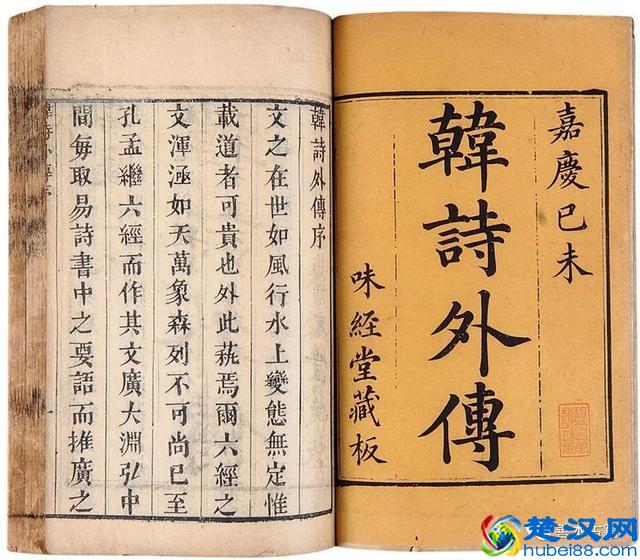 嘉慶己未
韓詩外傳
味經堂藏板
韓詩外傳序
文之在世如風行水上變態無定惟
載道者可貴也外此蓺焉爾六經之
文渾涵如天萬象森列不可尚已至
孔孟繼六經而作其文廣大淵弘中
間每取易詩書中之要語而推廣之
楚汉网
hubei88.com